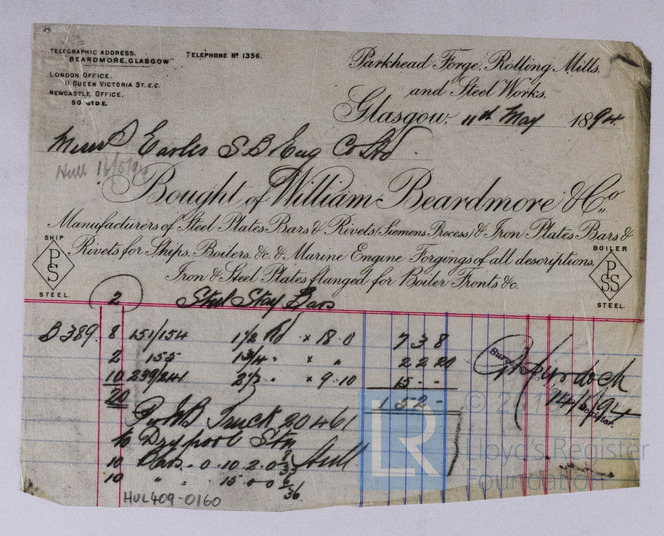 TELEGRAPHIC ADDRESS,
"BEARDMORE, GLASGOW"
TELEPHONE Nº 1356.
LONDON OFFICE,
11 QUEEN VICTORIA ST. E.C.
NEWCASTLE OFFICE,
50 SIDE.
Parkhead Forge, Rolling Mills,
and Steel Works,
Glasgow, 11th May 1894
Messrs Earles S B Eng Co Ltd
Hull
Bought of William Beardmore & Co.,
Manufacturers of Steel Plates Bars & Rivets (Siemens Process) & Iron Plates Bars &
Rivets for Ships, Boilers, &c. & Marine Engine Forgings of all descriptions,
Iron & Steel Plates flanged for Boiler Fronts &c.
SHIP
PS
STEEL.
BOILER
PSS
STEEL.
2 Steel Stay Bars
B389. 8 151/154 1 1/2 × 18.0 7 3 8
2 155 1 3/4 " × " 2 2 20
10 239/241 × 9.10 15 - -
20 1 5 2 -
Murdoch
14/5/94
Truck 20461
to Drypool Stn
Hull
10 Bars - 0.10.2.0
10 " " 15.0.0
HUL409-0160
LR
© 201
Lloyd's Register
Foundation